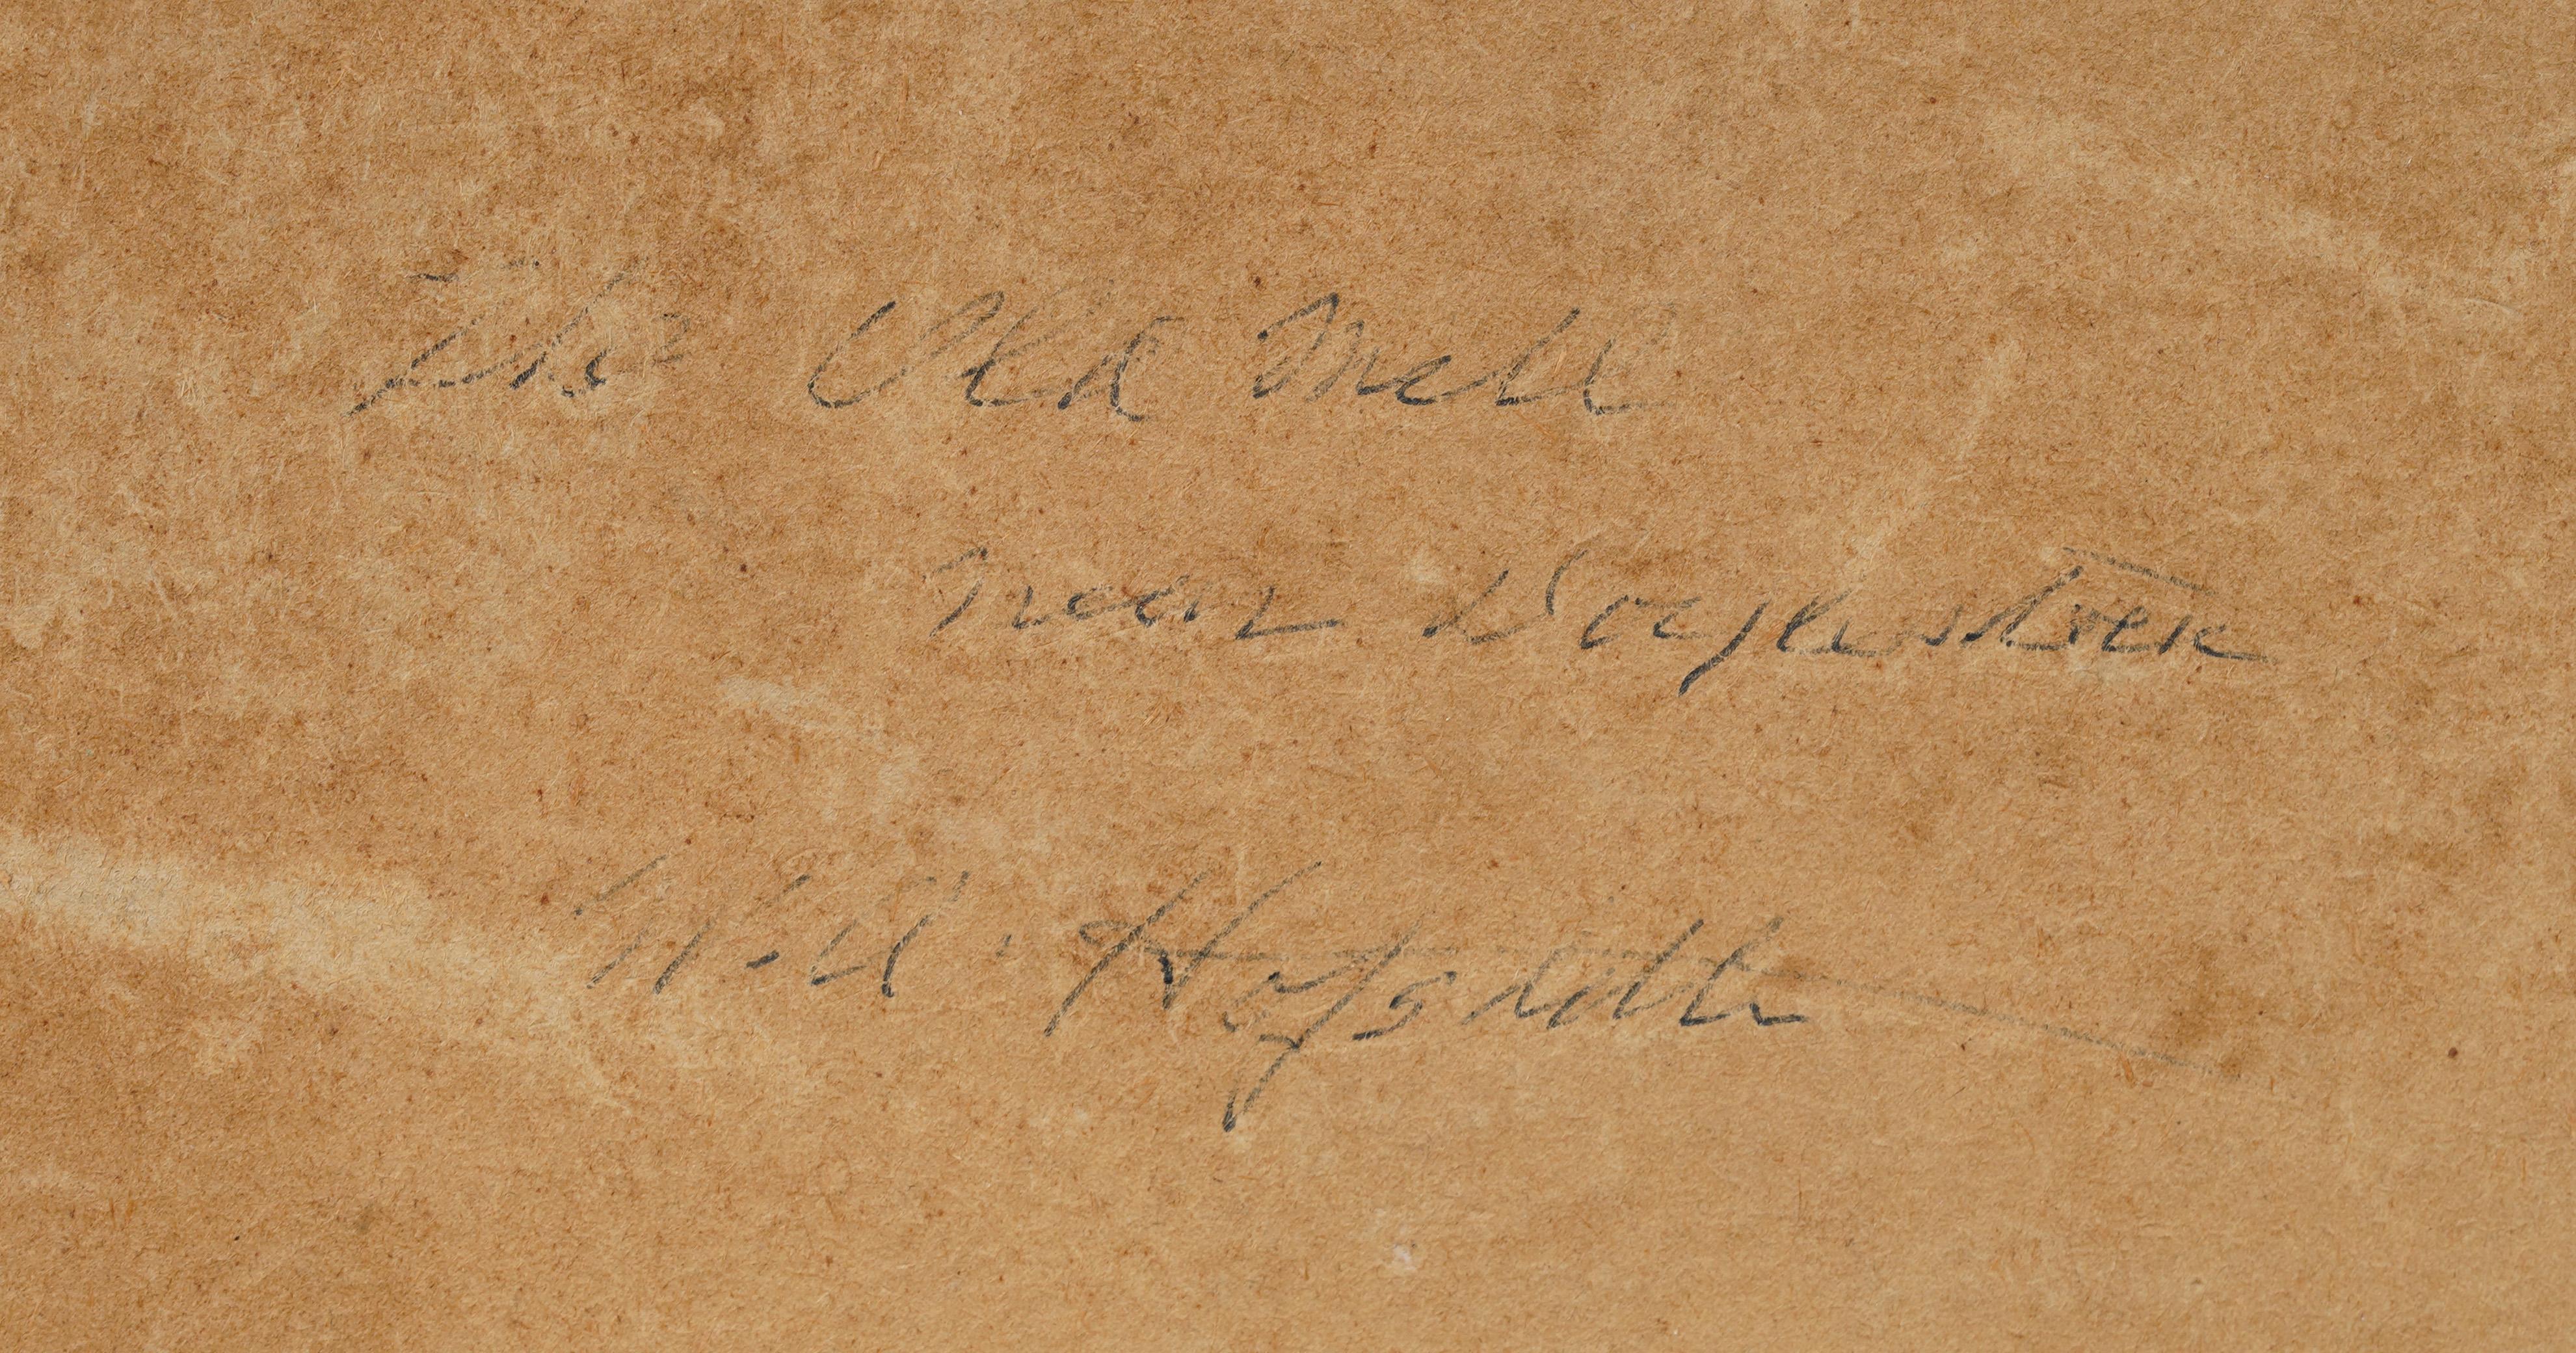 The Old Mill
near Doylestown
W. A. Hofstetter